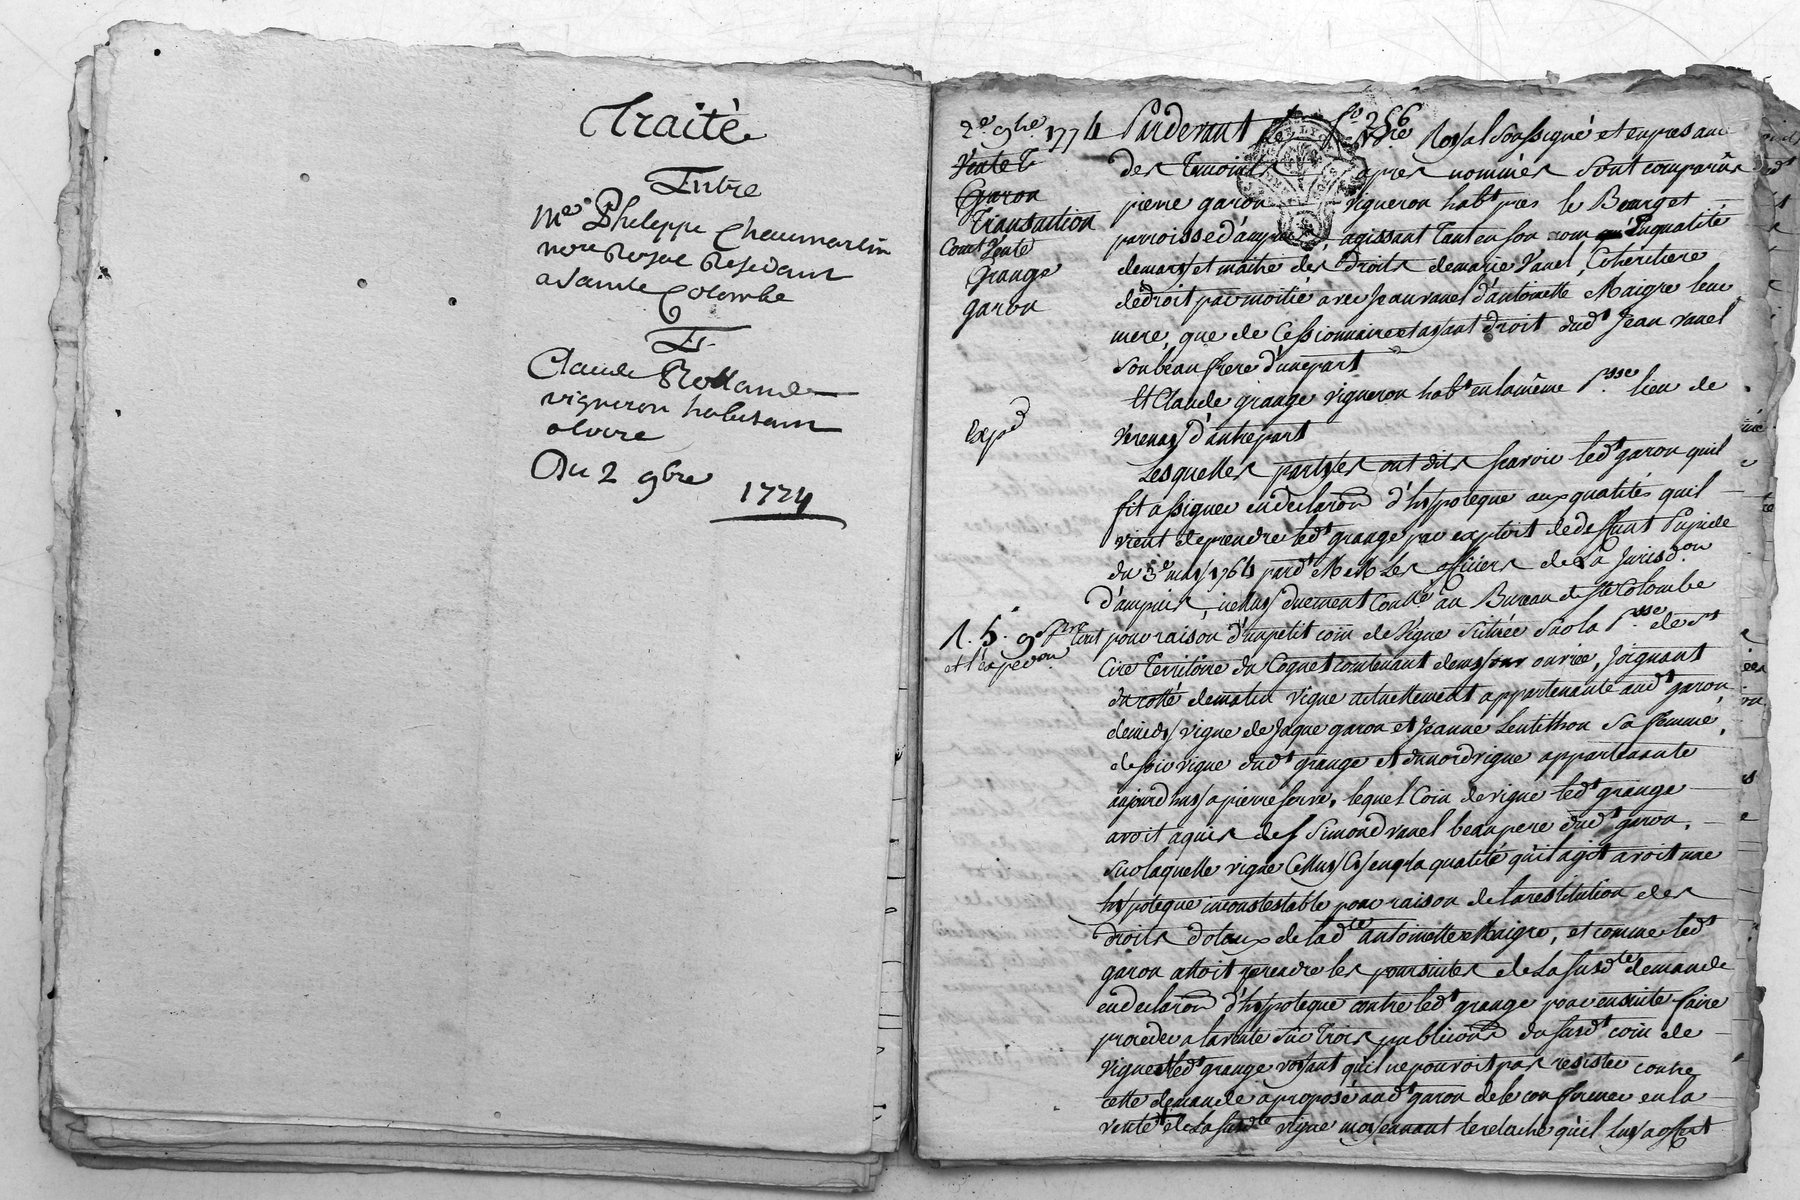 Traité
Entre
Me Pheleppe Chaumartin
nore Royal Residant
a Sainte Colombe
Et
Claude Rolland
vigneron habitant
a loire
Du 2 9bre 1774
2e 9bre 1774
Vente
Garon
Transaction
Cont Vente
Grange
garon
Expd
fo 256
Pardevant le Nore Royal Soussigné et en presance
des Temoins apres nommés Sont comparus
pierre garon vigneron habt pres le Bourg et
parroisse d'ampuis, agissant Tant en son nom qu'en qualité
demary et maitre des droits demarie Vanel, Coheritiere
de droit par moitié avec Jean vanel d'antoinette Maigre leur
mere, que de Cessionnaire et ayant droit dudt Jean vanel
Son beau frere d'une part
Et Claude grange vigneron habt en la même Psse lieu de
Verenay d'autre part
Lesquelles partyes ont dit Scavoir ledt garon quil
fit assigner en declaraon d'hypoteque aux qualités quil
vient de prendre ledt grange par exploit de deffunt Pupide
du 3e may 1764 pardt MM Les officiers de La Jurisdon
d'ampuis, icelluy duement Conllé au Bureau de Ste Colombe
pour raison d'un petit coin de Vigne Scituée Sur la Psse de St
Cire Territoire du Coquet contenant demy ouvrée, Joignant
du cotté de matin vigne actuellement appartenante audt garon
de midy vigne de Jaque garon et Jeanne Lentillon Sa femme,
de soir vigne dudt grange et du nord vigne appartenante
aujourd'huy a pierre Serve, lequel Coin de vigne ledt grange
avoit aquis de f Simond vanel beaupere dudt garon,
Sur laquelle vigne Celluy Cy en la qualité qu'il agit avoit une
hypoteque incontestable pour raison de la restitution des
droits dotaux de ladte antoinette Maigre, et comme ledt
garon alloit reprendre les poursuites de La susdte demande
en declaraon d'hypoteque contre ledt grange pour ensuite faire
proceder a la vente Sur Trois publicaons du susdt coin de
vigne ledt grange voyant qu'il ne pouvoit pas resister contre
cette demande a proposé audt garon de le confirmer en la
vente de La susdte vigne moyennant le relaché qu'il luy a offert